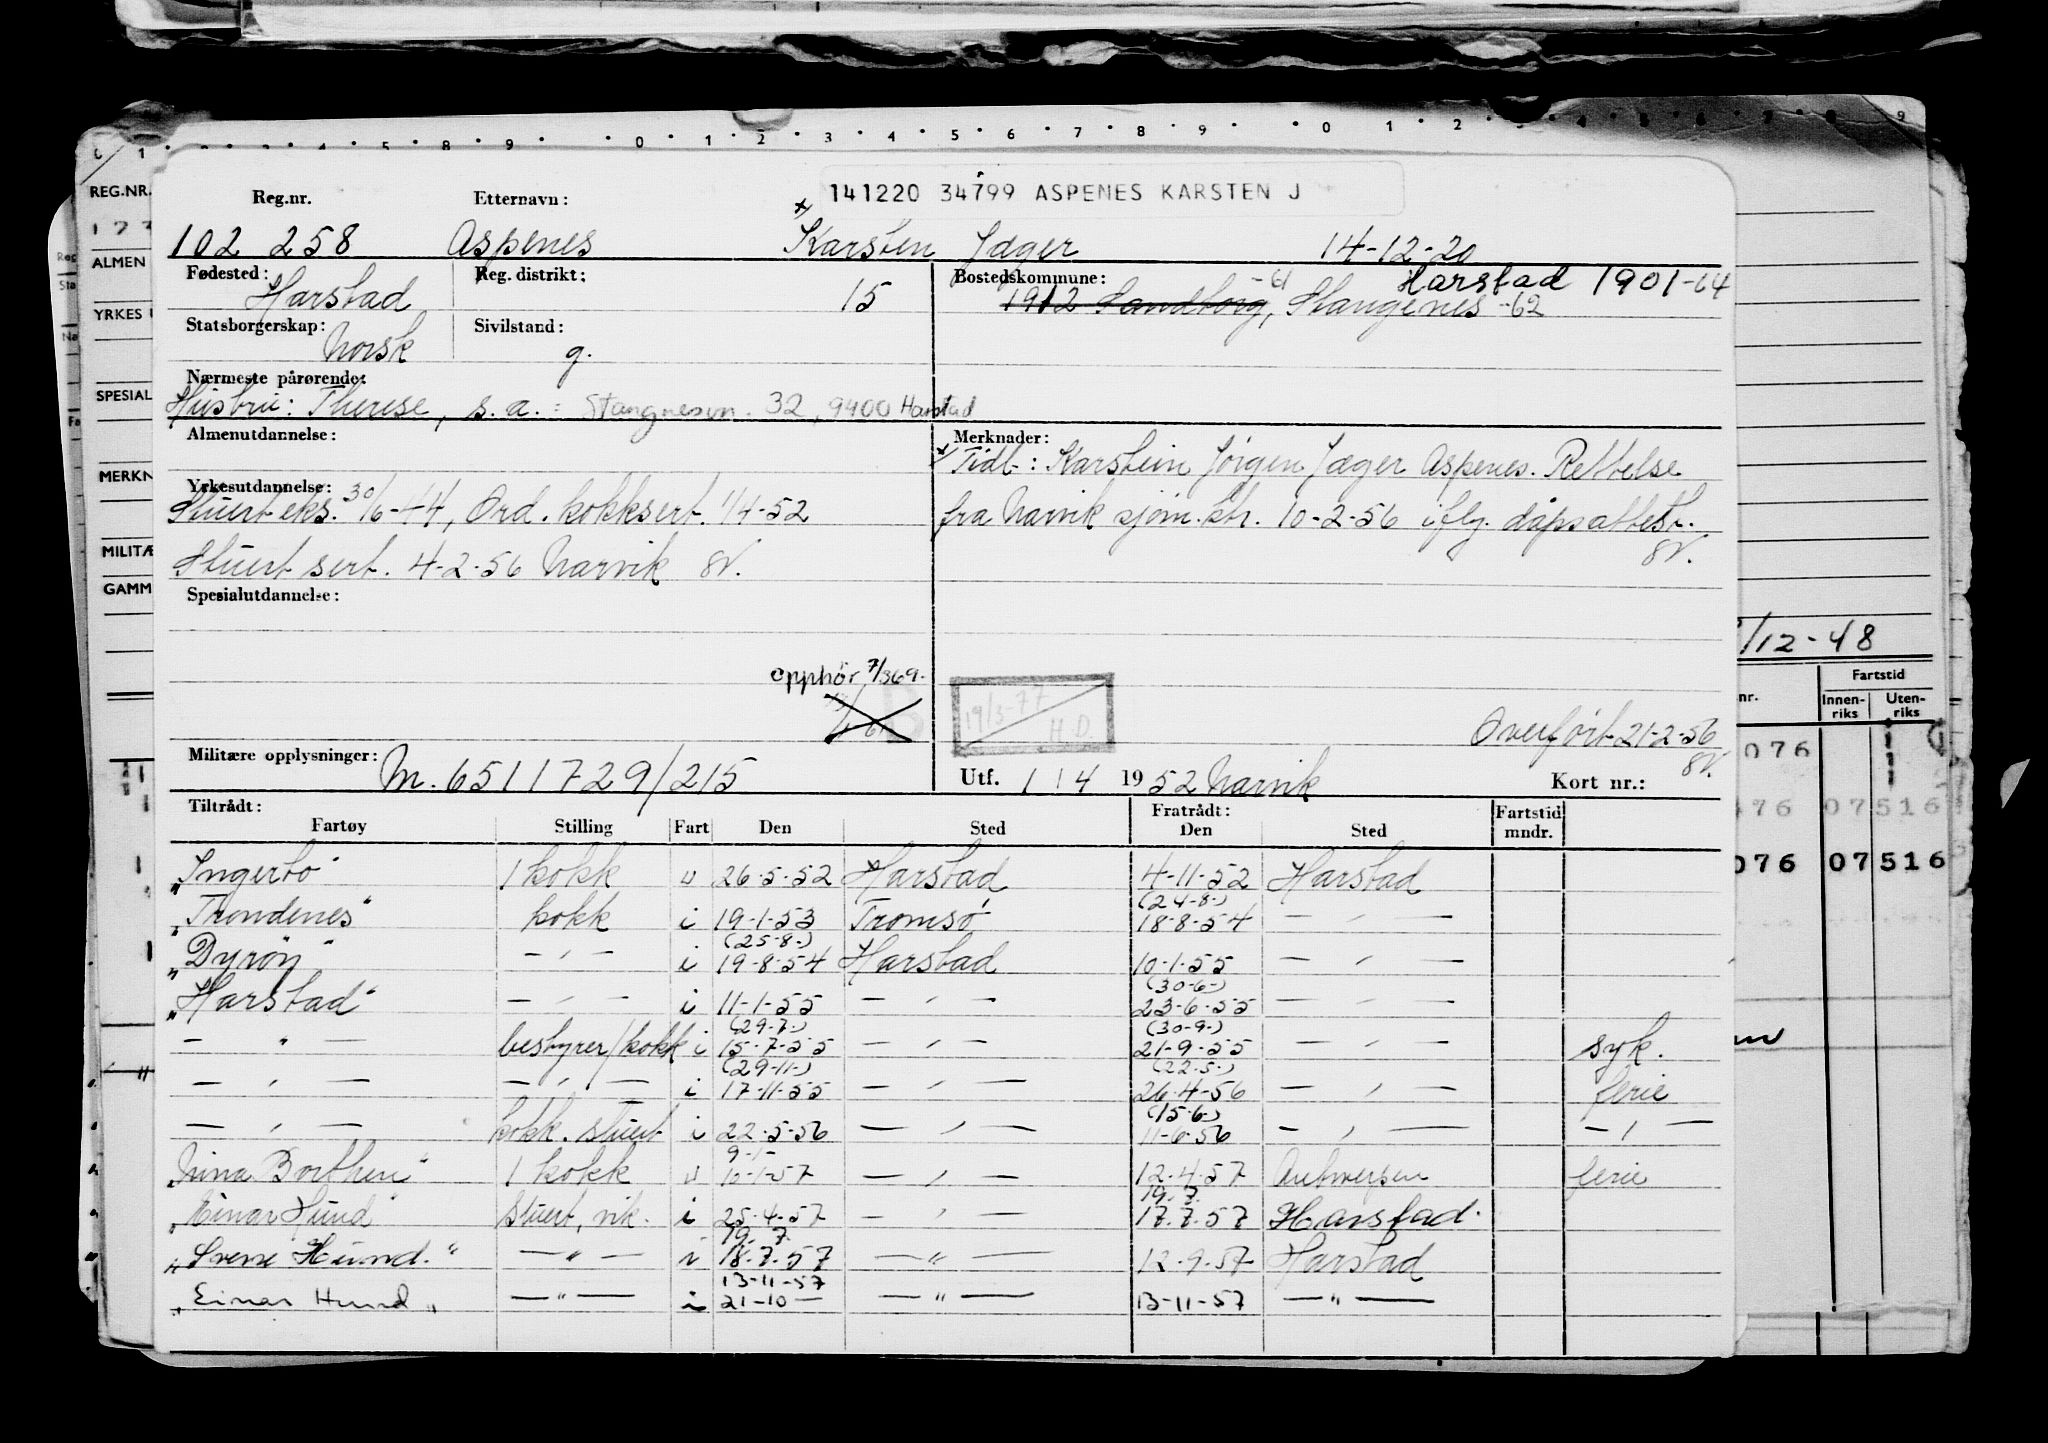 0 1 2 3 4 5 8 9 0 1 2 3 4 5 6 7 8 9 0 1 2 3 4 5 6 7 8 9
REG.NR.
1 2 3
ALMEN
YRKES
SPESIAL
MERKN
MILITÆ
GAMM
141220 34799 ASPENES KARSTEN J
Reg.nr. Etternavn:
102 258 Aspenes x) Karsten Jæger 14-12-20
Fødested: Reg. distrikt: Bostedskommune: -61 Harstad 1901-64
Harstad 15 1912 Sandtorg, Stangenes -62
Statsborgerskap: Sivilstand:
Norsk g.
Nærmeste pårørende:
Hustru: Therese, s.a.: Stangnesvn. 32, 9400 Harstad
Almenutdannelse: Merknader:
x) Tidl.: Karstein Jørgen Jæger Aspenes. Rettelse
Yrkesutdannelse:
Stuert eks. 30/6-44, Ord. kokksert. 1/4-52 fra Narvik sjøm.ktr. 10-2-56 iflg. dåpsattest.
Stuert sert. 4-2-56 Narvik SV. SV.
Spesialutdannelse:
/12-48
opphør 7/369.
B 19/3-77 H.D. Overført 21-2-56
SV.
Militære opplysninger: M. 6511729/215 Utf. 1/4 1952 Narvik Kort nr.:
Fartstid
nr. Innen-riks Uten-riks
076
076 07 516
076 07 516
Tiltrådt: Fratrådt:
Fartøy Stilling Fart Den Sted Den Sted Fartstid mndr.
"Ingertо" 1 kokk u 26-5-52 Harstad 4-11-52 Harstad
(24-8-)
"Trondenes" kokk i 19-1-53 Tromsø 18-8-54 — " —
(25-8-)
"Dyrøy" — " — i 19-8-54 Harstad 10-1-55 — " —
(30-6-)
"Harstad" — " — i 11-1-55 — " — 23-6-55 — " —
(29-7-) (30-9-)
— " — bestyrer/kokk i 15-7-55 — " — 21-9-55 — " — syk.
(29-11-) (22-5-)
— " — — " — i 17-11-55 — " — 26-4-56 — " — ferie
(15-6-)
— " — kokk. stuert i 22-5-56 — " — 11-6-56 — " — — " —
9-1-
"Nina Borthen" 1 kokk u 10-1-57 — " — 12-4-57 Antwerpen ferie
19.7.
"Einar Hund" Stuert, vik. i 25-4-57 — " — 17.7.57 Harstad.
19.7
"Sverre Hund." — " — i 18.7.57 — " — 12-9-57 Harstad
13-11-57
"Einar Hund" — " — i 21-10 — — " — 13-11-57 — " —